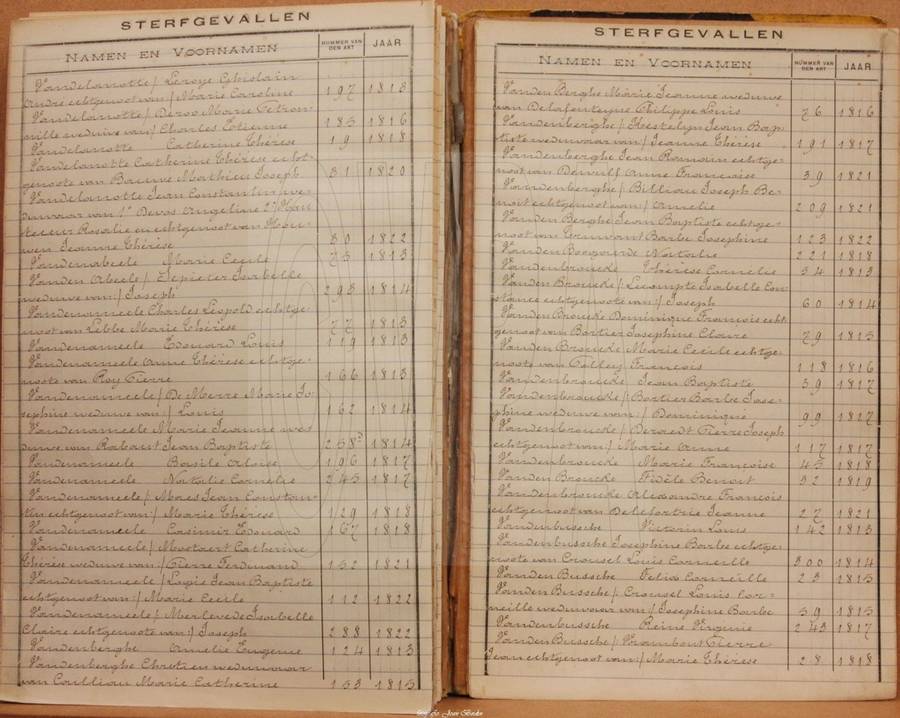 STERFGEVALLEN
NAMEN EN VOORNAMEN NUMMER VAN DEN AKT JAAR
Vandelanotte / Leroye Ghislain
André echtgenoot van / Marie Caroline 197 1813
Vandelanotte / Deroo Marie Petron-
nille weduwe van / Charles Etienne 185 1816
Vandelanotte Catherine Thérèse 19 1818
Vandelanotte Catherine Thérèse echt-
genoote van Mathieu Joseph 31 1820
Vandelanotte Jean Constantin we-
duwaar van 1° Devos Angeline 2°
Rosalie en echtgenoot van
Jeanne Thérèse 30 1822
Vandenabeele Marie Cecile 75 1813
Vanden Abeele / Depieter Isabelle
weduwe van / Joseph 293 1814
Vandenameele Charles Léopold echtge-
noot van Lebbe Marie Thérèse 77 1813
Vandenameele Edouard Louis 119 1813
Vandenameele Anne Thérèse echtge-
noote van Roy Pierre 166 1813
Vandenameele / De Merre Marie Jo-
sephine weduwe van / Louis 162 1814
Vandenameele Marie Jeanne we-
duwe van Rabaut Jean Baptiste 258 1814
Vandenameele Basile Aloïse 196 1817
Vandenameele Natalie Cornelie 245 1817
Vandenameele / Maes Jean Constan-
tin echtgenoot van / Marie Thérèse 129 1818
Vandenameele Casimir Edouard 167 1818
Vandenameele / Mostaert Catherine
Thérèse weduwe van / Pierre Ferdinand 152 1821
Vandenameele / Jean Baptiste
echtgenoot van / Marie Cecile 112 1822
Vandenameele / Merlevede Isabelle
Claire echtgenoote van / Joseph 288 1822
Vandenberghe Amelie Eugenie 124 1813
Vandenberghe Chretien weduwaar
van Coulliau Marie Catherine 153 1815
STERFGEVALLEN
NAMEN EN VOORNAMEN NUMMER VAN DEN AKT JAAR
Vanden Berghe Marie Jeanne weduwe
van Delafonteyne Philippe Louis 76 1816
Vandenberghe / Hostelyn Jean Bap-
tiste weduwaar van / Jeanne Thérèse 191 1817
Vandenberghe Jean Romain echtge-
noot van Anne Francoise 39 1821
Vandenberghe / Billiau Joseph Be-
noit echtgenoot van / Amelie 209 1821
Vanden Berghe Jean Baptiste echtge-
noot van Barbe Josephine 123 1822
Vanden Natalie 221 1818
Vandenbroucke Thérèse Cornelie 34 1813
Vanden Broucke / Lecompte Isabelle Con-
stance echtgenoote van / Joseph 60 1814
Vanden Broucke Dominique François echt-
genoot van Bortier Josephine Claire 79 1815
Vanden Broucke Marie Cecile echtge-
noote van François 118 1816
Vandenbroucke Jean Baptiste 39 1817
Vandenbroucke / Bortier Barbe Jose-
phine weduwe van / Dominique 99 1817
Vandenbroucke / Deraedt Pierre Joseph
echtgenoot van / Marie Anne 117 1817
Vandenbroucke Marie Françoise 45 1818
Vanden Broucke Fidèle Benoit 32 1819
Vandenbroucke Alexandre François
echtgenoot van Delefortrie Jeanne 27 1821
Vandenbussche Victorin Louis 42 1813
Vandenbussche Josephine Barbe echtge-
noote van Crousel Louis Corneille 300 1814
Vanden Bussche Felix Corneille 23 1815
Vanden Bussche / Crousel Louis Cor-
neille weduwaar van / Josephine Barbe 59 1815
Vandenbussche Reine Virginie 243 1817
Vanden Bussche / Wrambout Pierre
Jean echtgenoot van / Marie Thérèse 28 1818